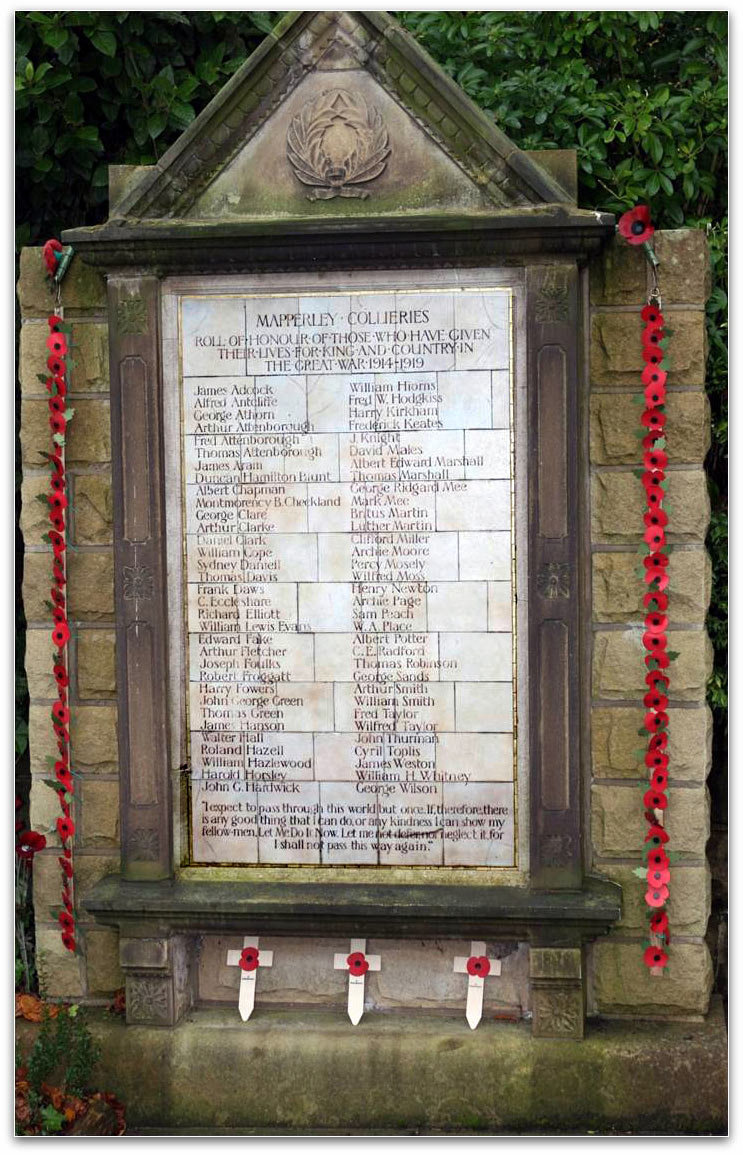 MAPPERLEY · COLLIERIES
ROLL · OF · HONOUR · OF · THOSE · WHO · HAVE · GIVEN
THEIR · LIVES · FOR · KING · AND · COUNTRY · IN
THE · GREAT · WAR · 1914-1919
James Adcock
Alfred Antcliffe
George Athorn
Arthur Attenborough
Fred Attenborough
Thomas Attenborough
James Aram
Duncan Hamilton Blunt
Albert Chapman
Montmorency B. Checkland
George Clare
Arthur Clarke
Daniel Clark
William Cope
Sydney Daniell
Thomas Davis
Frank Daws
C. Eccleshare
Richard Elliott
William Lewis Evans
Edward Fake
Arthur Fletcher
Joseph Foulks
Robert Froggatt
Harry Fowers
John George Green
Thomas Green
James Hanson
Walter Hall
Roland Hazell
William Hazlewood
Harold Horsley
John G. Hardwick
William Hioms
Fred W. Hodgkiss
Harry Kirkham
Frederick Keates
J. Knight
David Males
Albert Edward Marshall
Thomas Marshall
George Ridgard Mee
Mark Mee
Britus Martin
Luther Martin
Clifford Miller
Archie Moore
Percy Mosely
Wilfred Moss
Henry Newton
Archie Page
Sam Peach
W. A. Place
Albert Potter
C. E. Radford
Thomas Robinson
George Sands
Arthur Smith
William Smith
Fred Taylor
Wilfred Taylor
John Thurman
Cyril Toplis
James Weston
William H. Whitney
George Wilson
"I expect to pass through this world but once. If, therefore, there
is any good thing that I can do, or any kindness I can show my
fellow-men, Let Me Do It Now. Let me not defer nor neglect it, for
I shall not pass this way again."